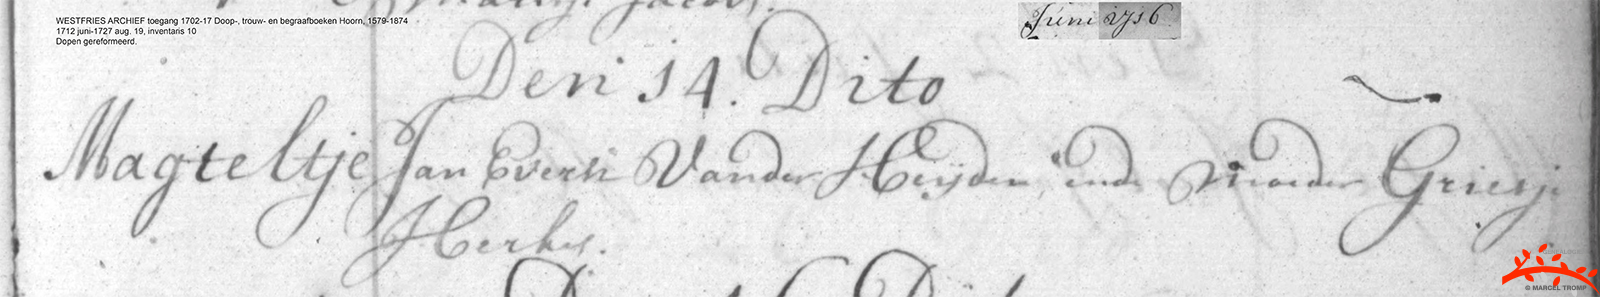 WESTFRIES ARCHIEF toegang 1702-17 Doop-, trouw- en begraafboeken Hoorn, 1579-1874
1712 juni-1727 aug. 19, inventaris 10
Dopen gereformeerd.
Juni 1716
Den 14. Dito
Magteltje Jan Everts Vander Heijden, ende moeder Grietje
Herkes.
© MARCEL TROMP